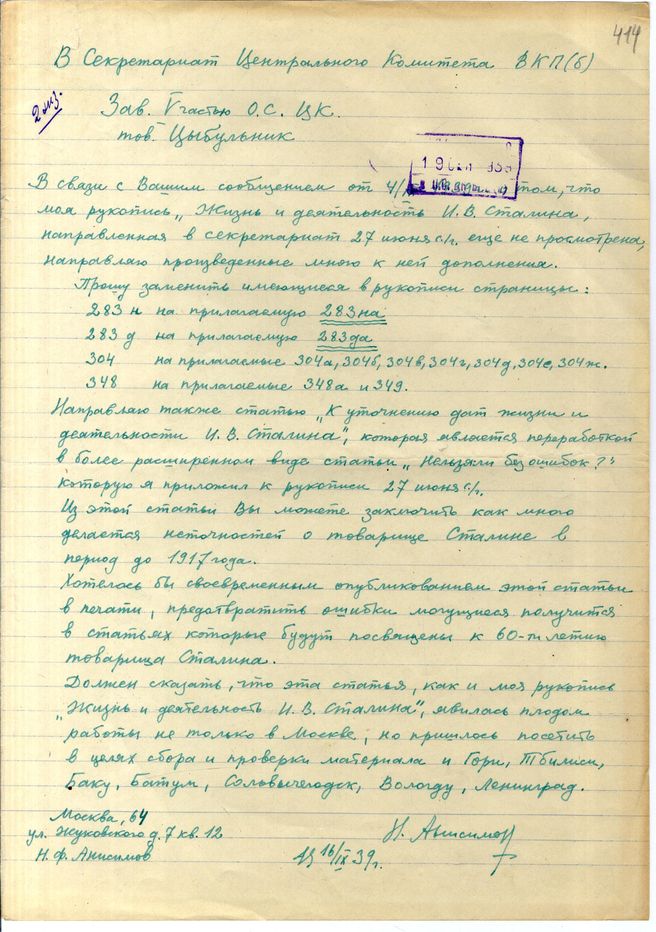 414
В Секретариат Центрального Комитета ВКП(б)
2 экз.
Зав. V частью О.С. ЦК.
тов. Цыбульник
19 СЕН 1939
В связи с Вашим сообщением от 4/ том, что
моя рукопись „Жизнь и деятельность И.В. Сталина,
направленная в секретариат 27 июня с/г. еще не просмотрена,
направляю произведенные мною к ней дополнения.
Прошу заменить имеющиеся в рукописи страницы:
283 н на прилагаемую 283на
283 д на прилагаемую 283да
304 на прилагаемые 304а, 304б, 304в, 304г, 304д, 304е, 304ж.
348 на прилагаемые 348а и 349.
Направляю также статью „К уточнению дат жизни и
деятельности И.В. Сталина", которая является переработкой
в более расширенном виде статьи „Нельзя ли без ошибок?"
которую я приложил к рукописи 27 июня с/г.
Из этой статьи Вы можете заключить как много
делается неточностей о товарище Сталине в
период до 1917 года.
Хотелось бы своевременным опубликованием этой статьи
в печати, предотвратить ошибки могущиеся получится
в статьях которые будут посвящены к 60-ти летию
товарища Сталина.
Должен сказать, что эта статья, как и моя рукопись
„Жизнь и деятельность И.В. Сталина", явилась плодом
работы не только в Москве, но пришлось посетить
в целях сбора и проверки материала и Гори, Тбилиси,
Баку, Батум, Сольвычегодск, Вологду, Ленинград.
Москва, 64
ул. Жуковского д. 7 кв. 12
Н. Ф. Анисимов
Н. Анисимов
16/IX 39г.